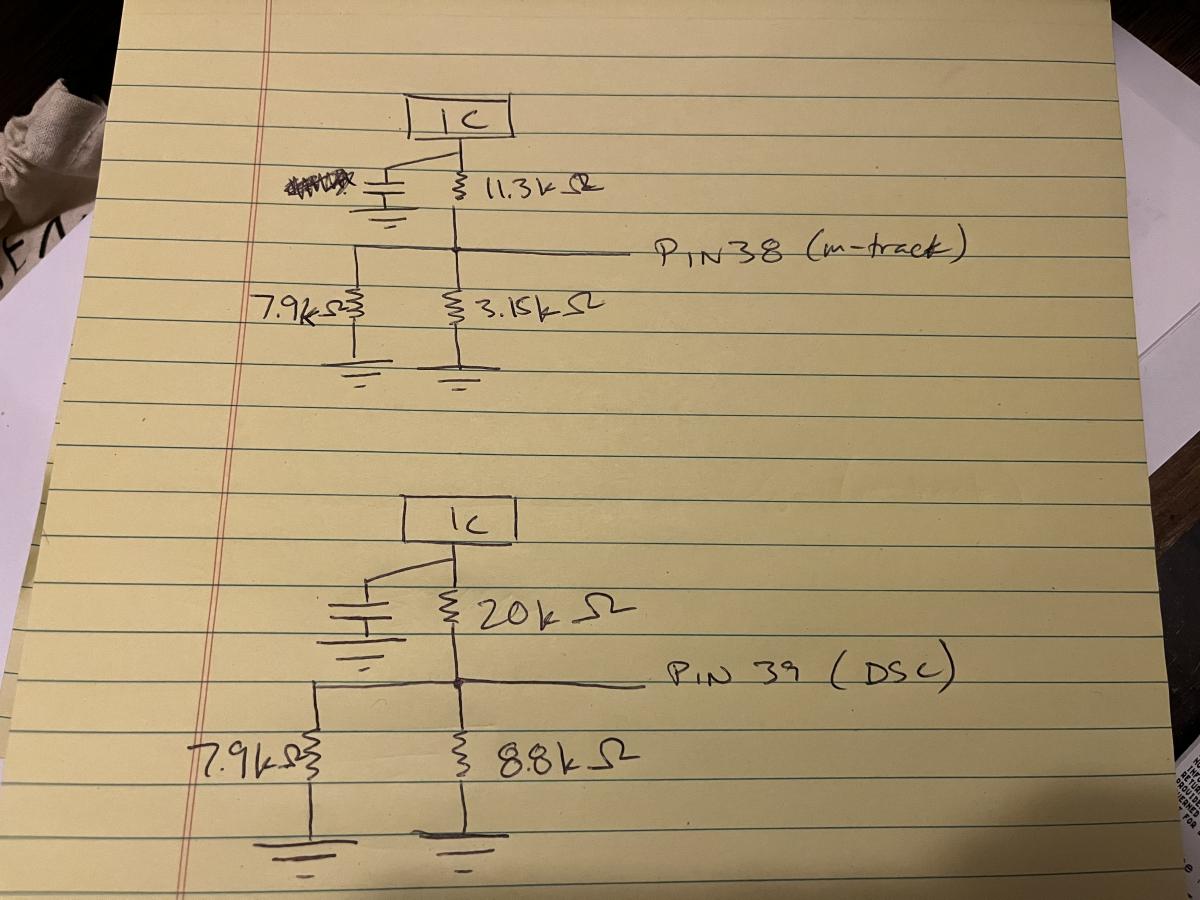 IC
11.3k Ω
PIN 38 (m-track)
7.9kΩ 3.15k Ω
IC
20k Ω
PIN 39 (DSC)
7.9kΩ 8.8k Ω